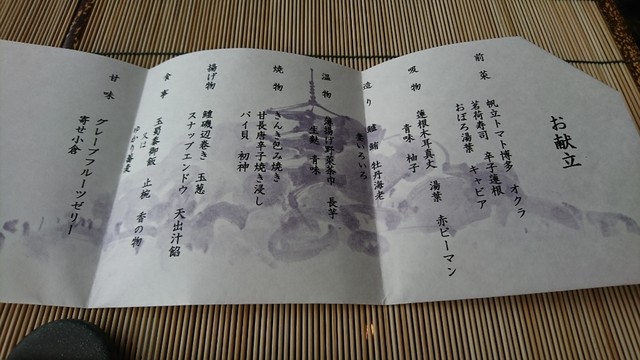 お献立
前菜
帆立トマト博多 オクラ
茗荷寿司 辛子蓮根
おぼろ湯葉 キャビア
吸物
蓮根木耳真丈 湯葉 赤ピーマン
青味 柚子
造り
鱧 鮪 牡丹海老
妻いろいろ
温物
蓮揚げ野菜茶巾 長芋
生麩 青味
焼物
きんき包み焼き
甘長唐辛子焼き浸し
バイ貝 初神
揚げ物
鱧磯辺巻き 玉葱
スナップエンドウ 天出汁餡
食事
玉蜀黍御飯 止椀 香の物
又は
甘味
グレープフルーツゼリー
寄せ小倉